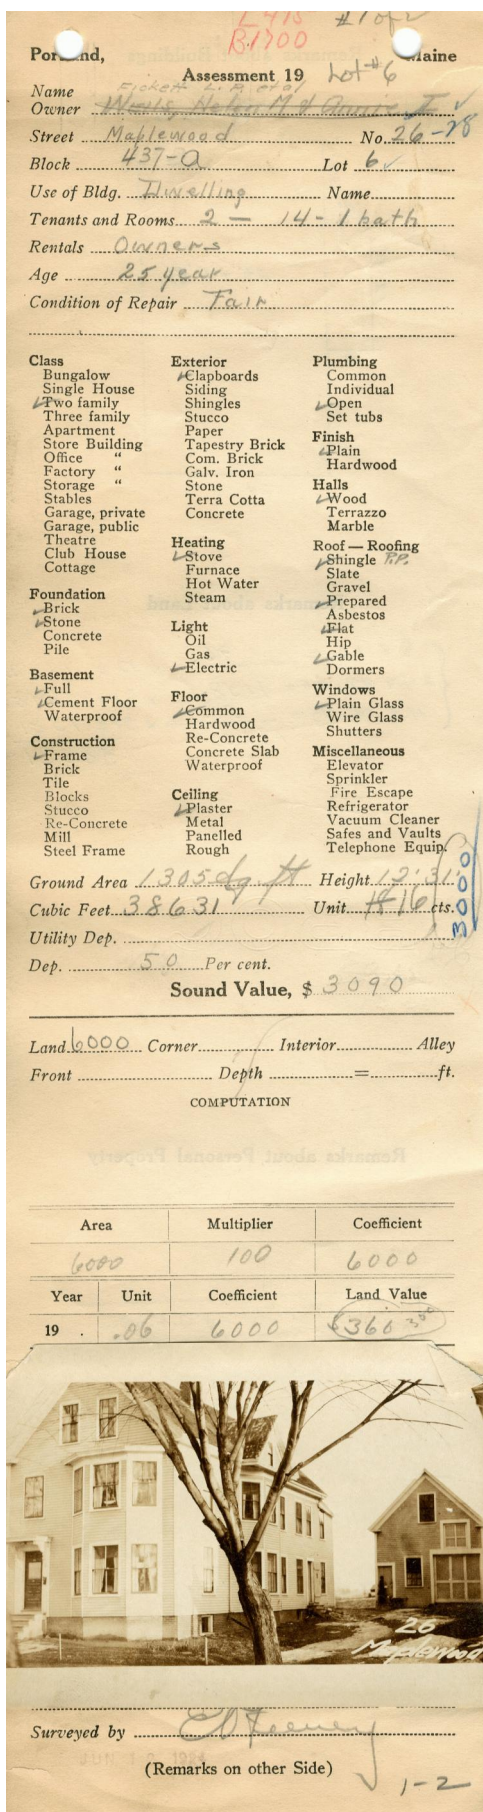 L475 #1 of 2
B.1700
Portland, Maine
Assessment 19 Lot #6
Name Fickett L. P. et al
Owner Wells, Helen M & Annie I
Street Maplewood No. 26-28
Block 437-A Lot 6
Use of Bldg. Dwelling Name
Tenants and Rooms 2 — 14 - 1 bath
Rentals Owners
Age 25 year
Condition of Repair Fair
Class
Bungalow
Single House
Two family
Three family
Apartment
Store Building
Office "
Factory "
Storage "
Stables
Garage, private
Garage, public
Theatre
Club House
Cottage
Foundation
Brick
Stone
Concrete
Pile
Basement
Full
Cement Floor
Waterproof
Construction
Frame
Brick
Tile
Blocks
Stucco
Re-Concrete
Mill
Steel Frame
Exterior
Clapboards
Siding
Shingles
Stucco
Paper
Tapestry Brick
Com. Brick
Galv. Iron
Stone
Terra Cotta
Concrete
Heating
Stove
Furnace
Hot Water
Steam
Light
Oil
Gas
Electric
Floor
Common
Hardwood
Re-Concrete
Concrete Slab
Waterproof
Ceiling
Plaster
Metal
Panelled
Rough
Plumbing
Common
Individual
Open
Set tubs
Finish
Plain
Hardwood
Halls
Wood
Terrazzo
Marble
Roof — Roofing
Shingle P.P.
Slate
Gravel
Prepared
Asbestos
Flat
Hip
Gable
Dormers
Windows
Plain Glass
Wire Glass
Shutters
Miscellaneous
Elevator
Sprinkler
Fire Escape
Refrigerator
Vacuum Cleaner
Safes and Vaults
Telephone Equip.
Ground Area 1305 sq. ft Height 12'.31'
Cubic Feet 38631 Unit #16 cts.
3000
Utility Dep.
Dep. 50 Per cent.
Sound Value, $ 3090
Land 6000 Corner Interior Alley
Front Depth = ft.
COMPUTATION
Area Multiplier Coefficient
6000 100 6000
Year Unit Coefficient Land Value
19 . .06 6000 $360 300
26
Maplewood
Surveyed by E D Feeney
JUN 12 1924
(Remarks on other Side)
1-2